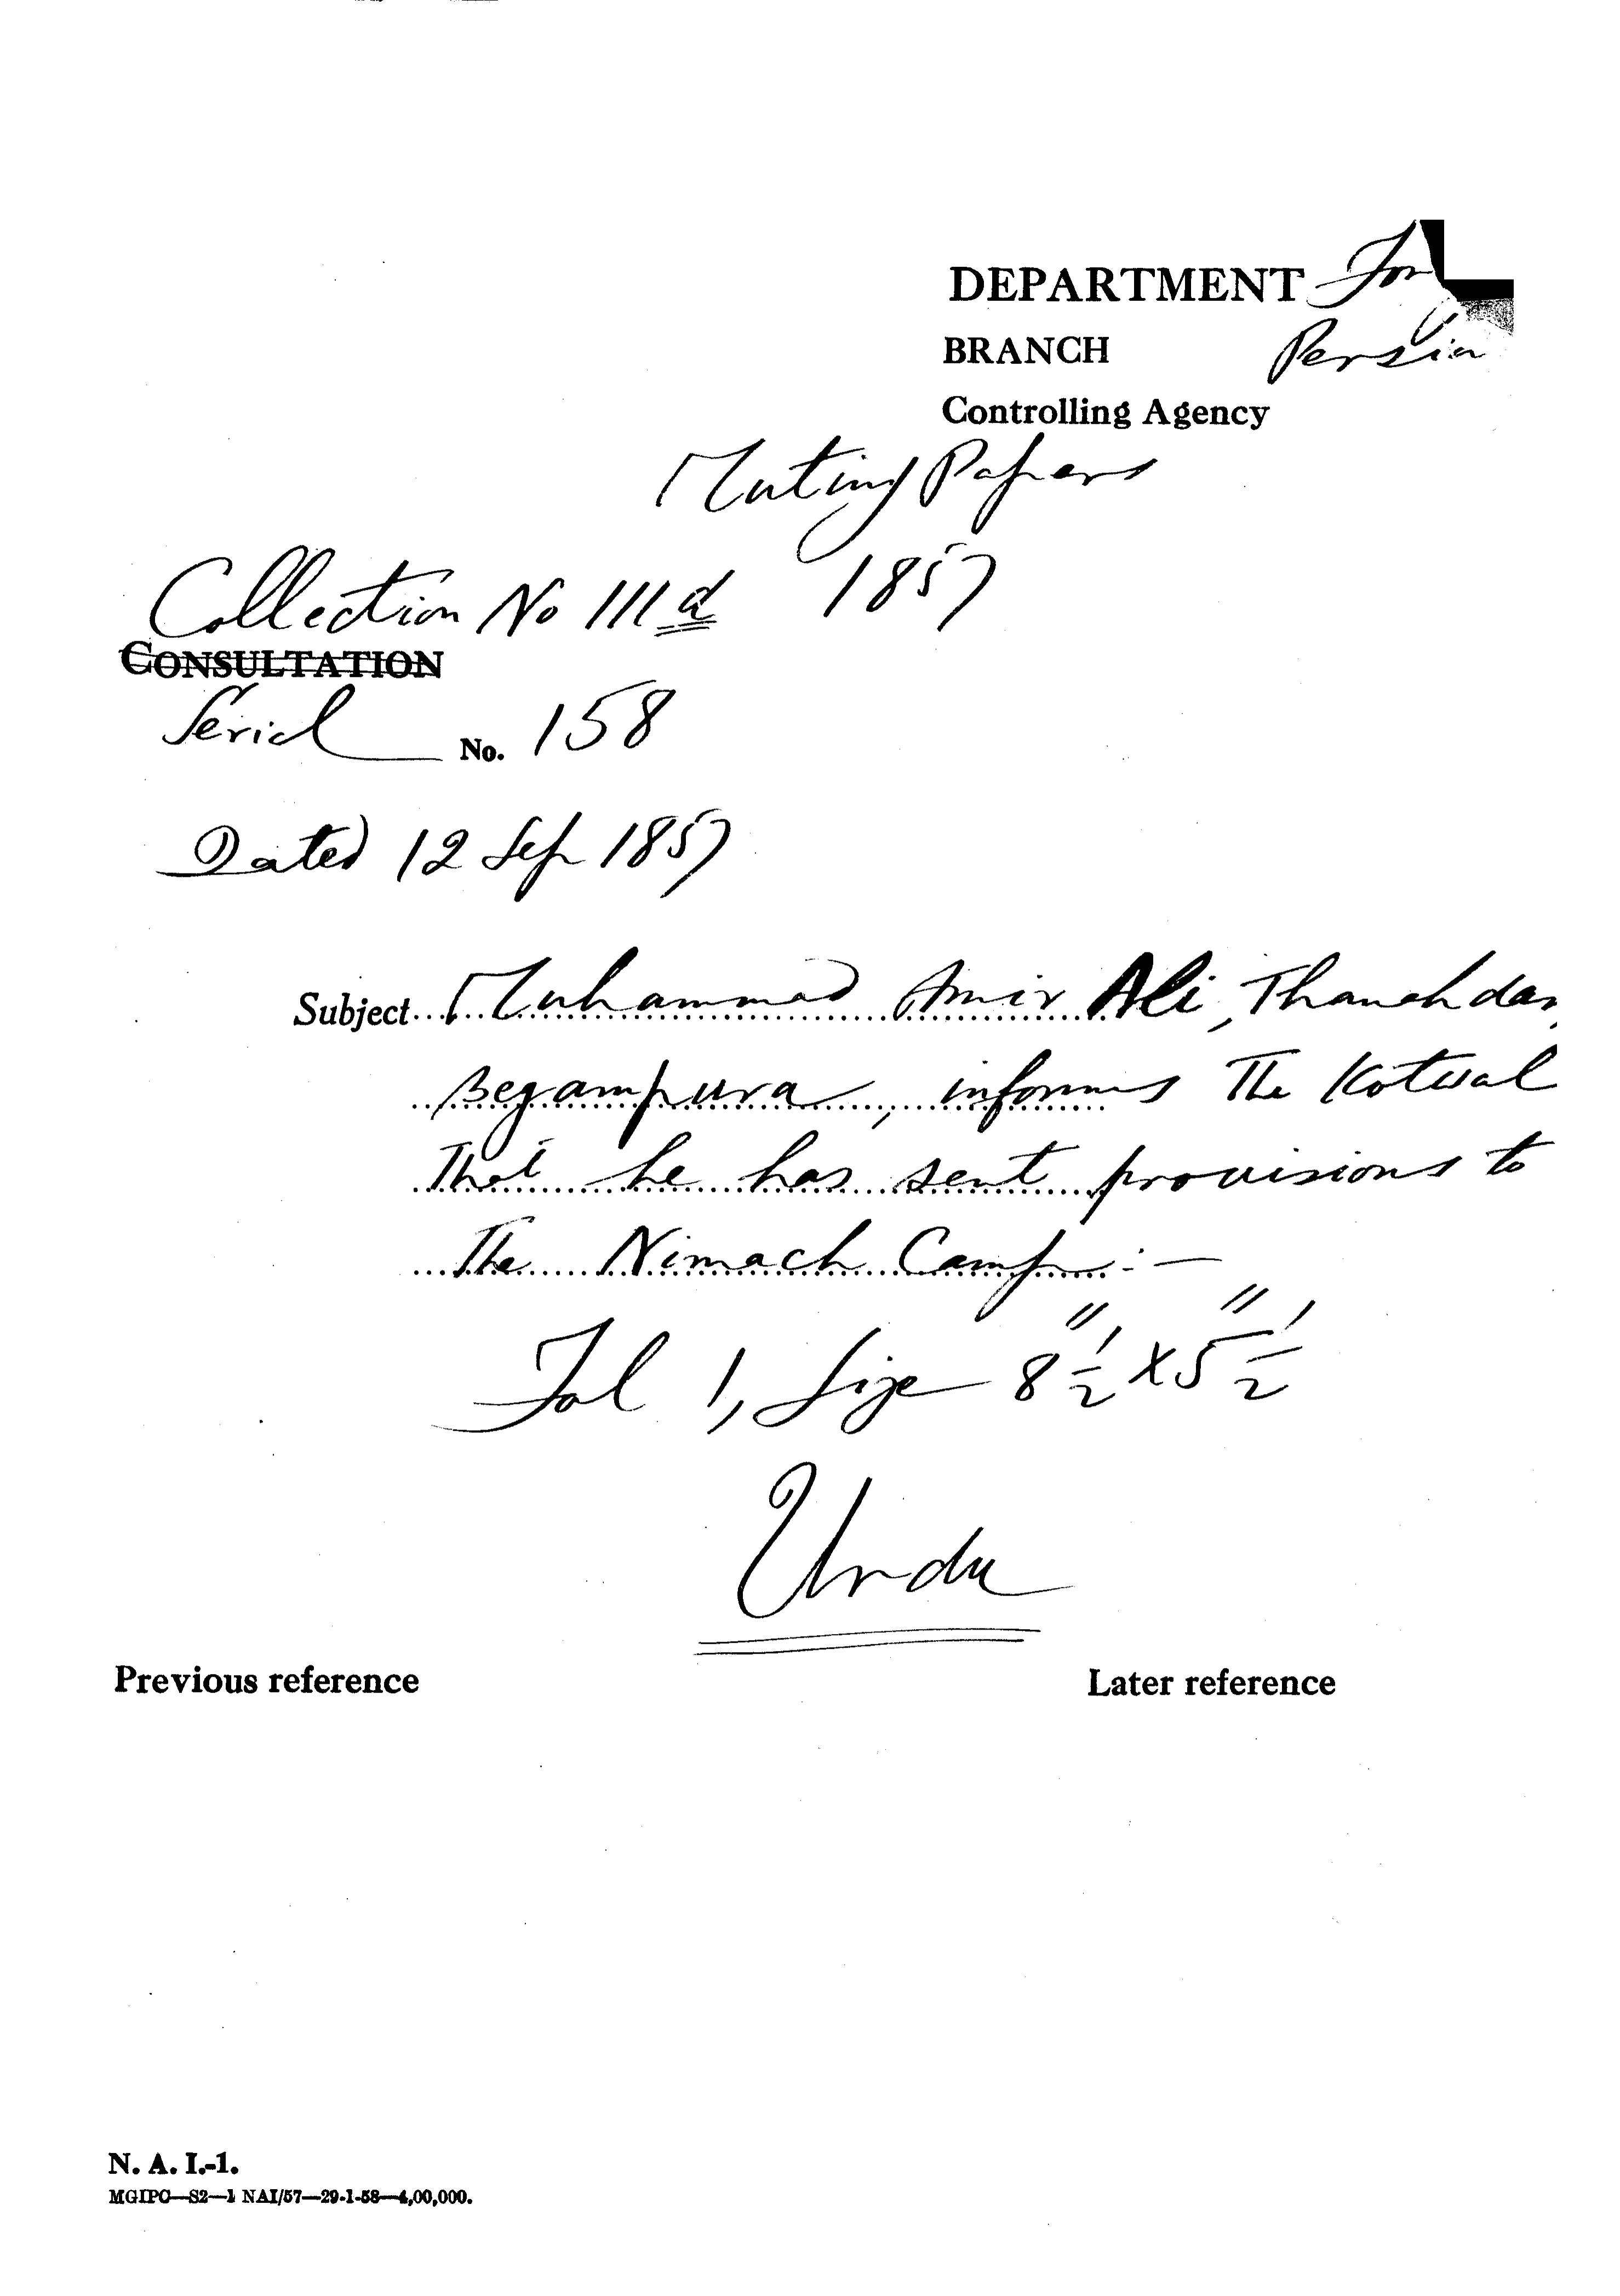 DEPARTMENT For
BRANCH Persian
Controlling Agency
Mutiny Papers
Collection No 111 d 1857
CONSULTATION
Serial No. 158
Dated 12 Sep 1857
Subject Muhammad Amir Ali, Thanahdar,
Begampura, informs The Kotwal
That he has sent provisions to
The Nimach Camp:—
Fol 1, Size 8 1/2" x 5 1/2"
Urdu
Previous reference Later reference
N. A. I.-1.
MGIPC—S2—1 NAI/57—29-1-58—4,00,000.